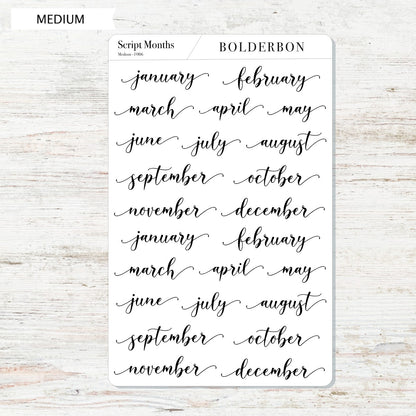 MEDIUM
Script Months
BOLDERBON
january february
march april may
june july august
september october
november december
january february
march april may
june july august
september october
november december